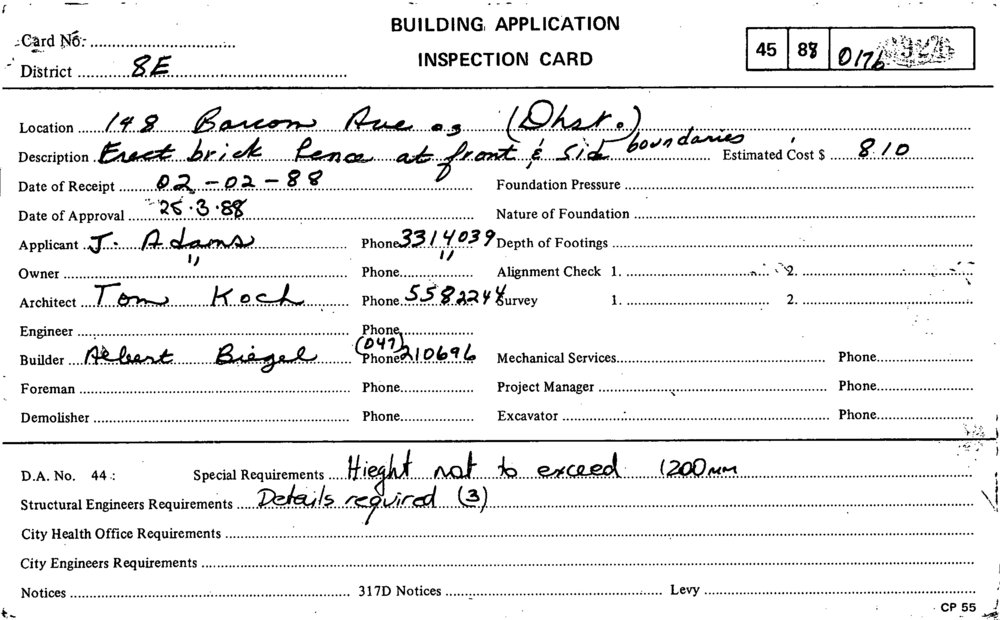 BUILDING APPLICATION
INSPECTION CARD
Card No.
District 8E
45 88 0176
Location 148 Barcom Ave (Dhst.)
Description Erect brick fence at front & side boundaries Estimated Cost $ 810
Date of Receipt 02-02-88 Foundation Pressure
Date of Approval 25.3.88 Nature of Foundation
Applicant J. Adams Phone 3314039 Depth of Footings
Owner " Phone " Alignment Check 1. 2.
Architect Tom Koch Phone 5582244 Survey 1. 2.
Engineer Phone
Builder Albert Biegel Phone (047) 210696 Mechanical Services Phone
Foreman Phone Project Manager Phone
Demolisher Phone Excavator Phone
D.A. No. 44 : Special Requirements Hieght not to exceed 1200mm
Structural Engineers Requirements Details required (3)
City Health Office Requirements
City Engineers Requirements
Notices 317D Notices Levy
CP 55